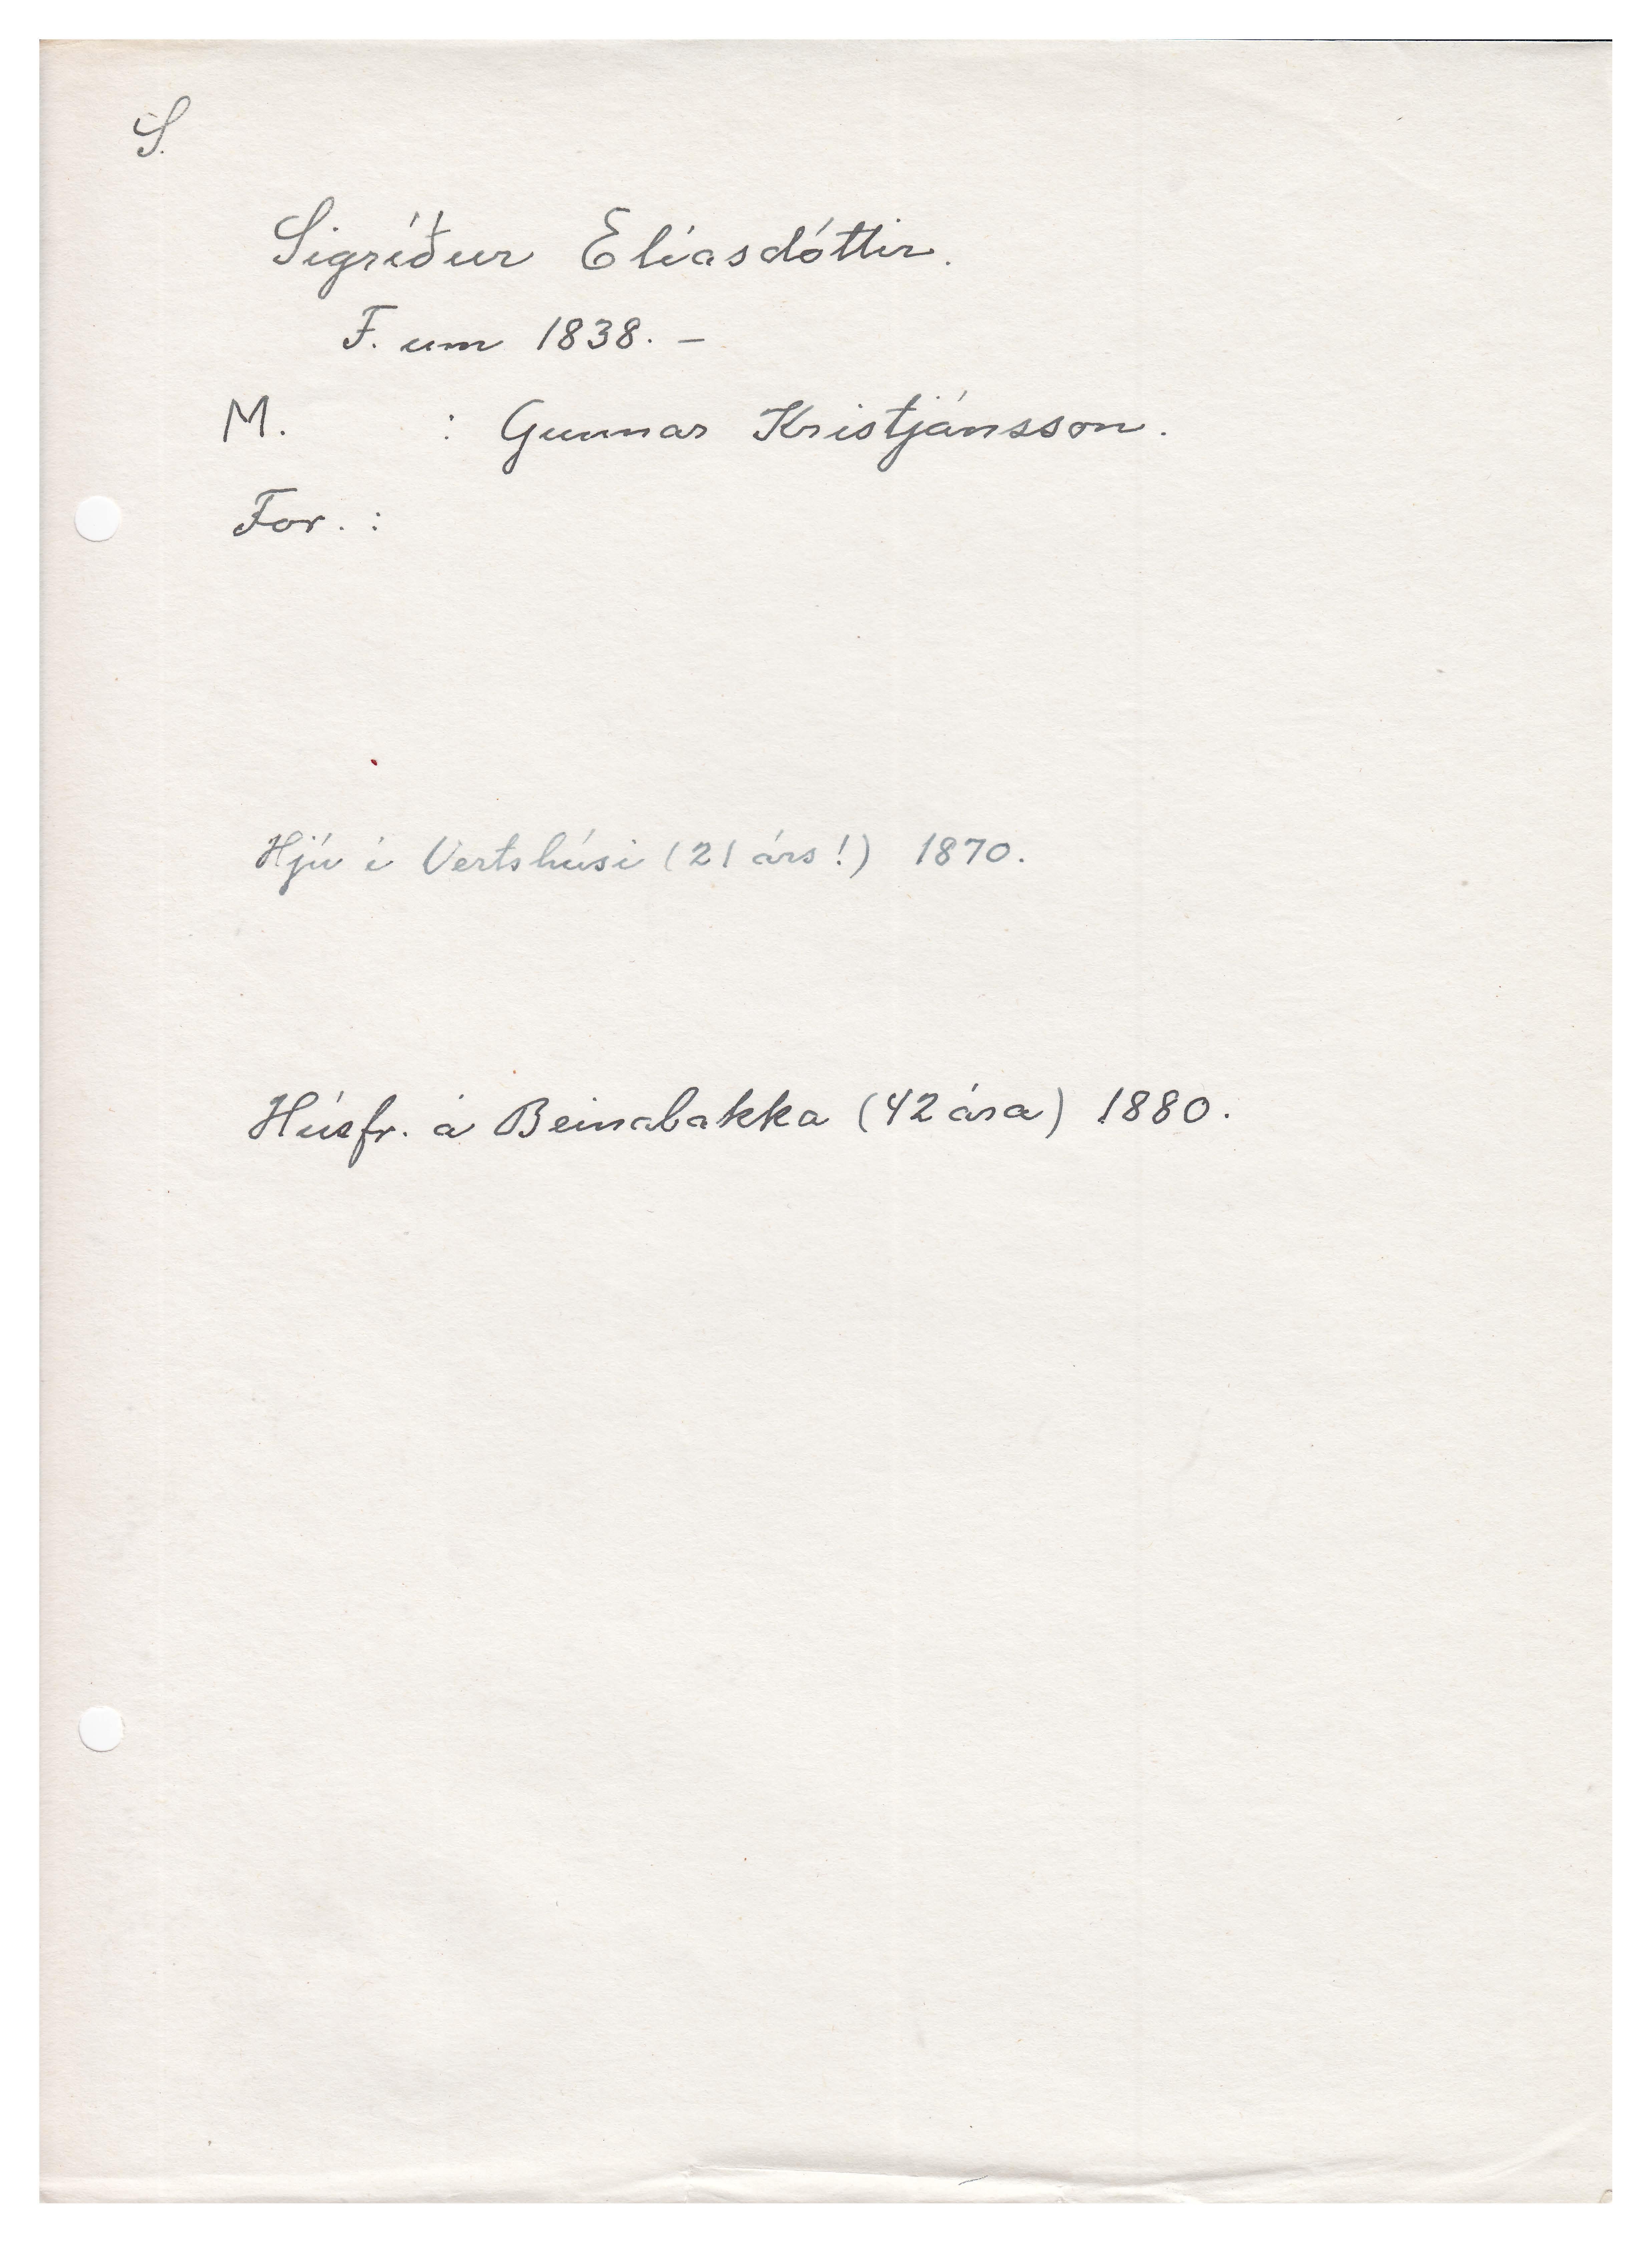 S.
Sigríður Elíasdóttir.
F. um 1838. –
M. : Gunnar Kristjánsson.
For. :
Hjú í Vertshúsi (21 árs!) 1870.
Húsfr. á Beinabakka (42 ára) 1880.